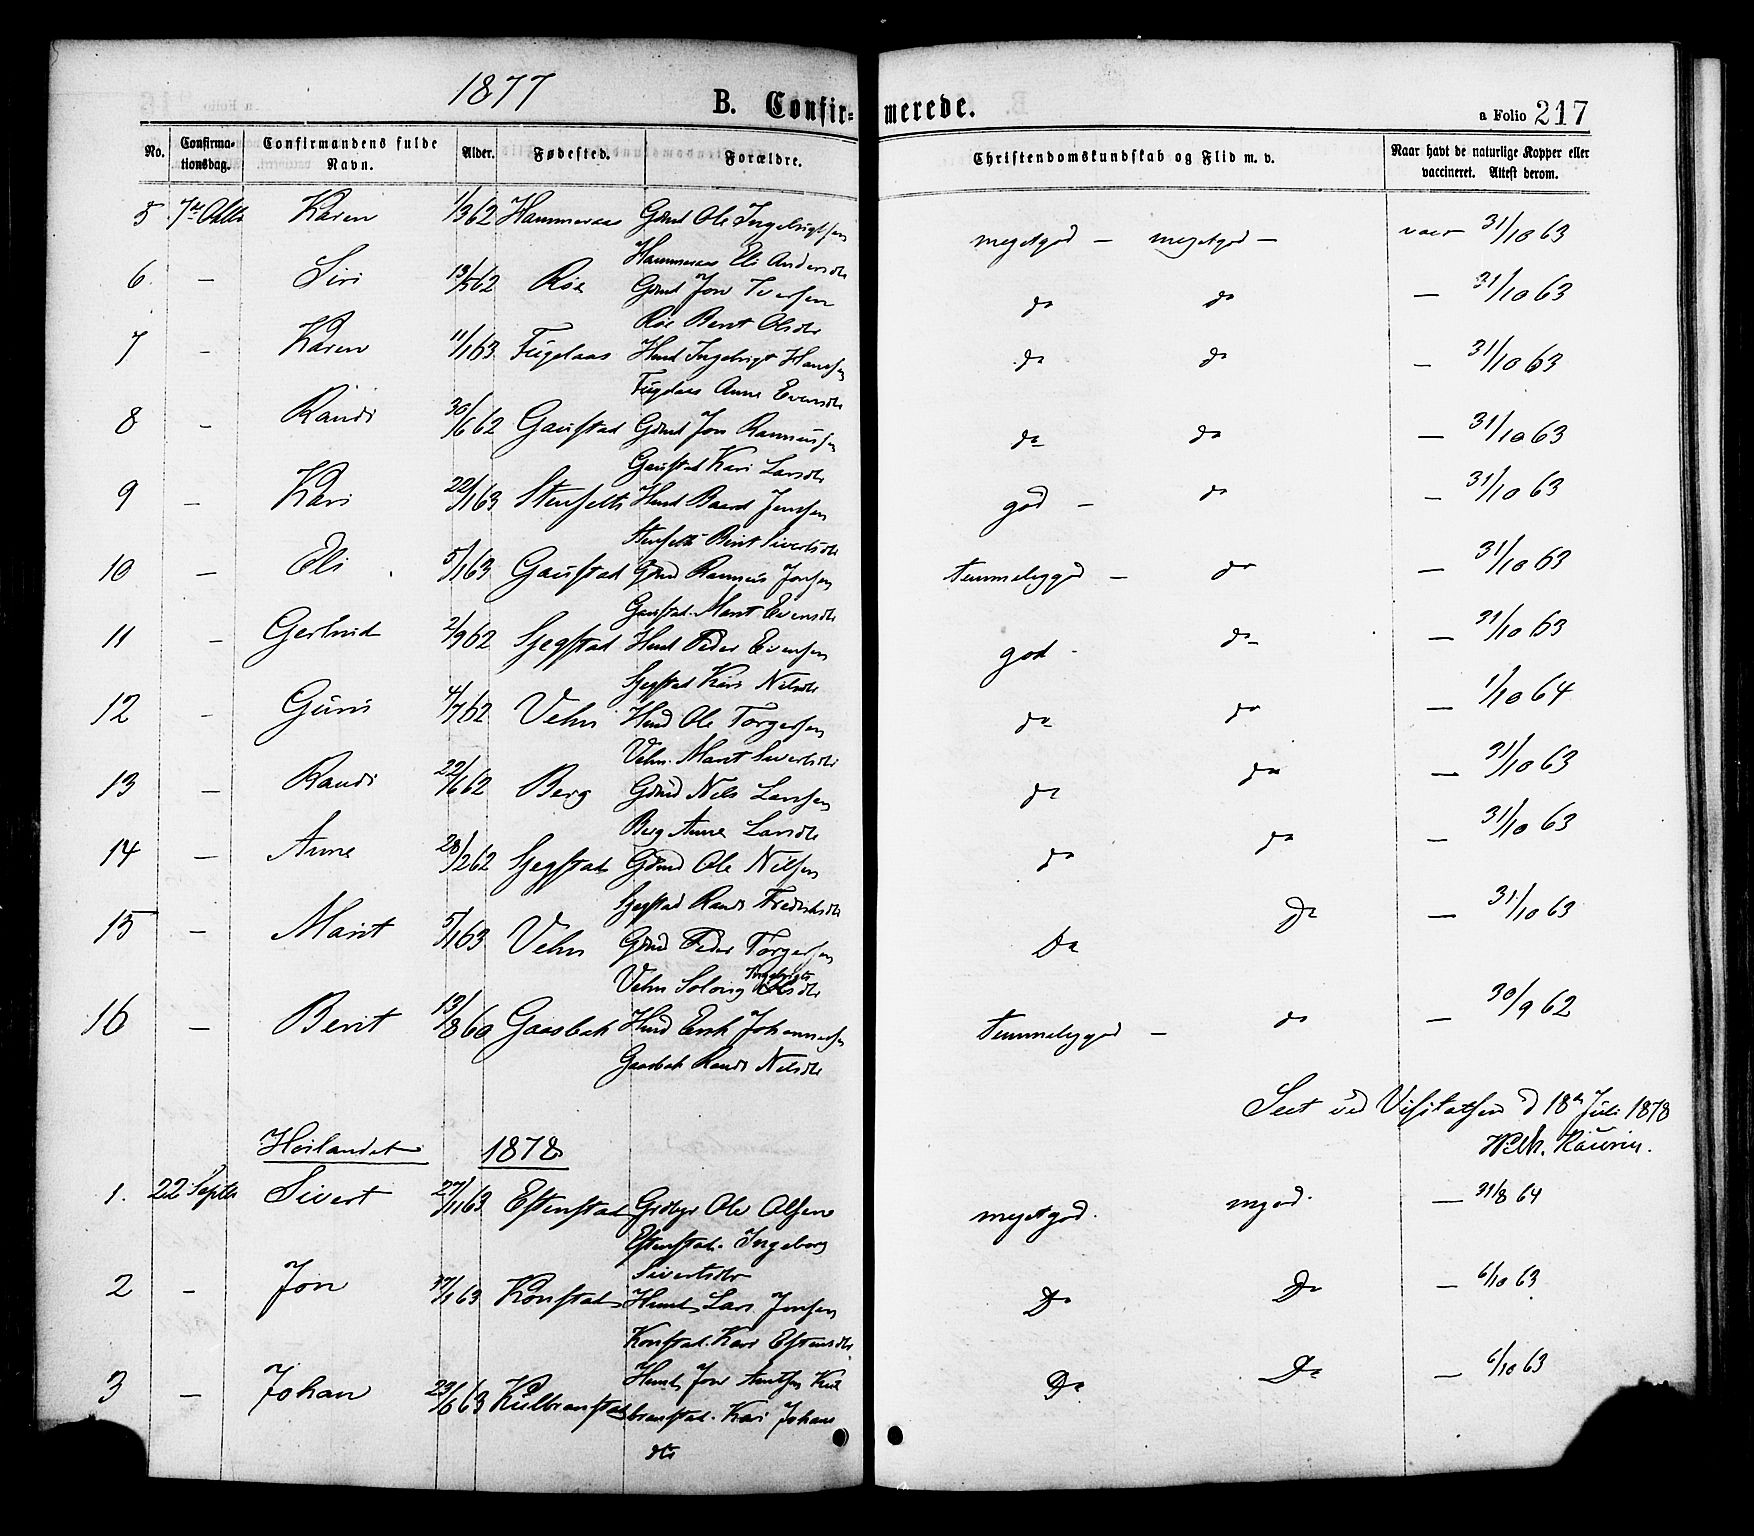 1877
B. Confir-merede.
a Folio 217
No. Confirma-tionsdag. Confirmandens fulde Navn. Alder. Fødested. Forældre. Christendomskundskab og Flid m. v. Naar havt de naturlige Kopper eller vaccineret. Attest derom.
5 7de Octbr Karen 1/3 62 Hammeraas Gdmd Ole Ingebrigtsen megetgod – megetgod – vacc 31/10 63
Hammeraas Eli Andersdtr
6 – Siri 13/5 62 Röe Gdmd Jon Iversen do do – 31/10 63
Röe Berit Olsdtr
7 – Karen 11/1 63 Fuglaas Hmd Ingebrigt Hansen do do – 31/10 63
Fuglaas Anne Evensdtr
8 – Randi 30/6 62 Gaustad Gdmd Jon Rasmussen do do – 31/10 63
Gaustad Kari Larsdtr
9 – Kari 22/1 63 Stenseth Hmd Baard Jensen god – do – 31/10 63
Stenseth Berit Sivertsdtr
10 – Eli 5/1 63 Gaustad Gdmd Rasmus Jonsen temmeliggod – do – 31/10 63
Gaustad. Marit Evensdtr
11 – Gertrud 2/9 62 Sjegstad Hmd Peder Evensen god – do – 31/10 63
Sjegstad Kari Nilsdtr
12 – Guri 4/7 62 Vehn Hmd Ole Torgersen do do – 1/10 64
Vehn. Marit Sivertsdtr
13 – Randi 22/6 62 Berg Gdmd Nils Larsen do do – 31/10 63
Berg Anne Larsdtr
14 – Anne 28/2 62 Sjegstad Gdmd Ole Nilsen do do – 31/10 63
Sjegstad Randi Frederiksdtr
15 – Marit 5/1 63 Vehn Gdmd Peder Torgersen Do Do – 31/10 63
Vehn Solvig Ingebrigts dtr
16 – Berit 13/8 60 Gaasbak Hmd Erik Johannesen temmeliggod – do – 30/9 62
Gaasbak Randi Nilsdtr
Seet ved Visitatsen d 18de Juli 1878
Wilh. Kaurin.
Høilandet 1878
1. 22 Septbr Sivert 27/1 63 Estenstad Grdbgr Ole Olsen megetgod. mgod. – 31/8 64
Estenstad. Ingeborg
Sivertsdtr
2 – Jon 63 Konstad Hmd Lars Jonsen Do Do – 6/10 63
Konstad. Kari Estensdtr
3 – Johan 29/6 63 Kulbranstad Hmd Jon Arntsen Kul Do Do – 6/10 63
branstad. Kari Johans
dtr